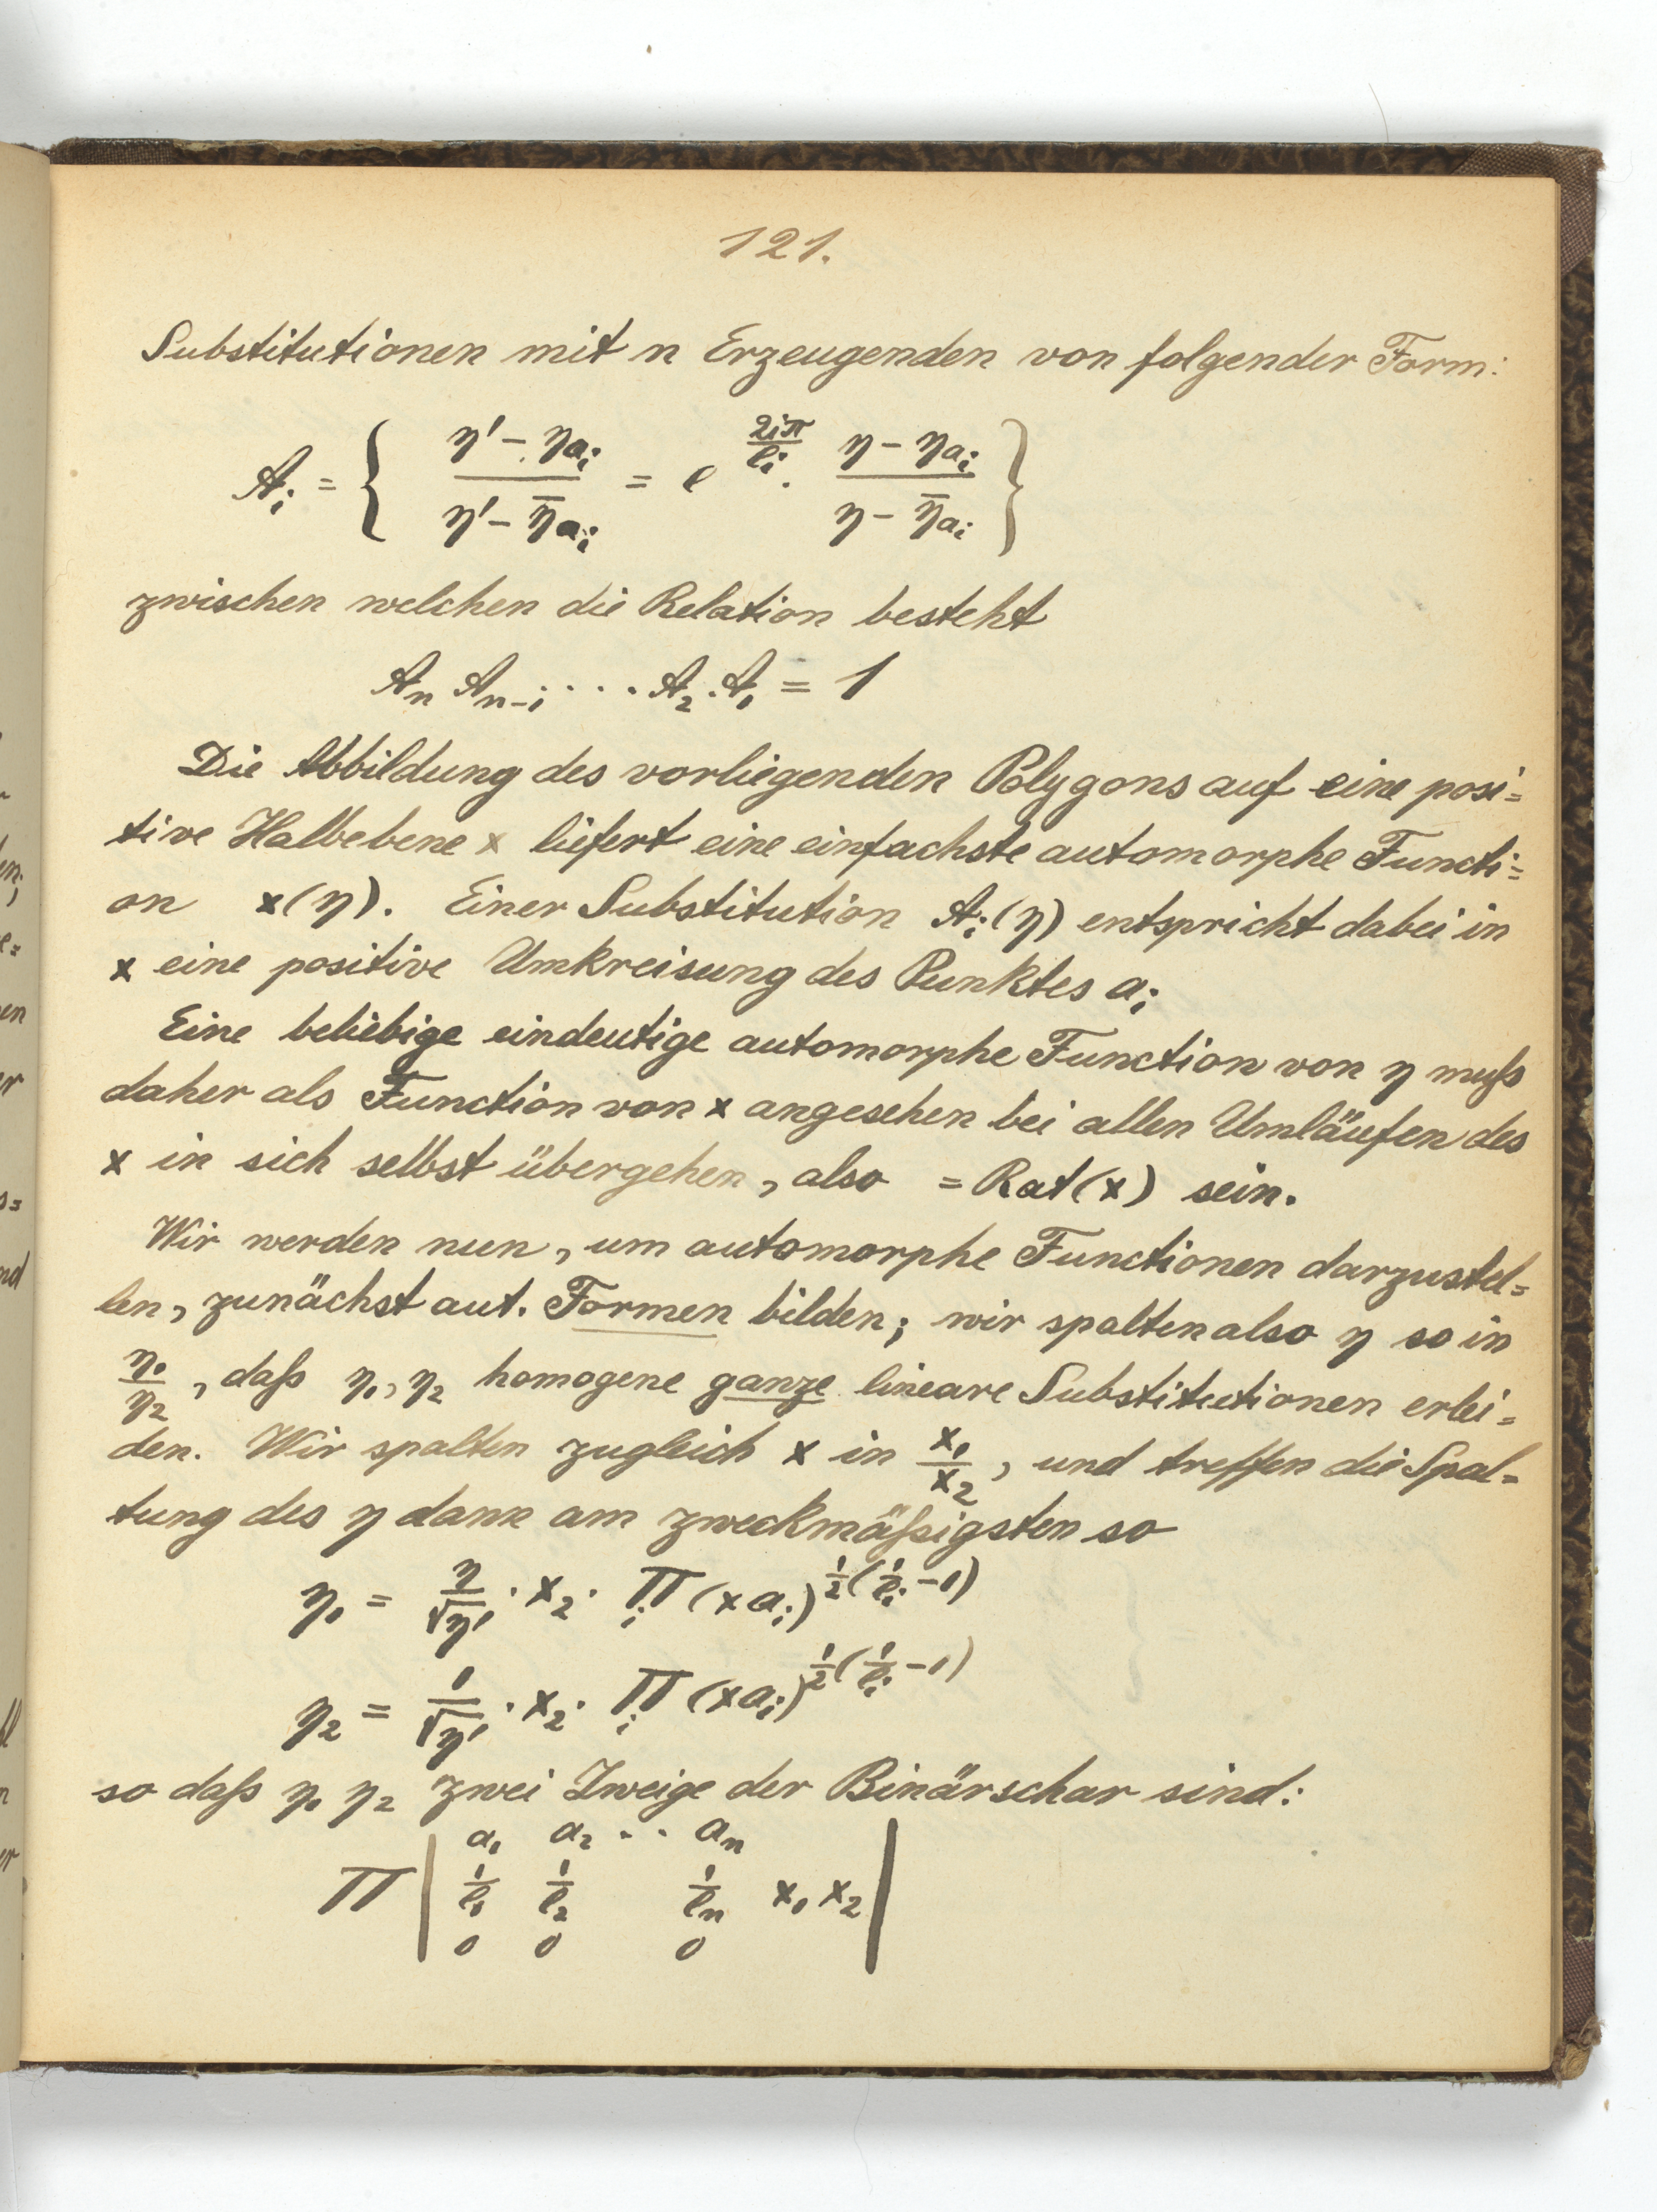 121.
Substitutionen mit n Erzeugenden von folgender Form:
A_i = { (η' − η_{a_i}) / (η' − η̄_{a_i}) = e^{2iπ/l_i} · (η − η_{a_i}) / (η − η̄_{a_i}) }
zwischen welchen die Relation besteht
A_n A_{n-1} · · · · A_2 · A_1 = 1
Die Abbildung des vorliegenden Polygons auf eine posi=
tive Halbebene x liefert eine einfachste automorphe Functi=
on x(η). Einer Substitution A_i(η) entspricht dabei in
x eine positive Umkreisung des Punktes a_i
Eine beliebige eindeutige automorphe Function von η muß
daher als Function von x angesehen bei allen Umläufen des
x in sich selbst übergehen, also = Rat(x) sein.
Wir werden nun, um automorphe Functionen darzustel=
len, zunächst aut. Formen bilden; wir spalten also η so in
η_1/η_2, daß η_1, η_2 homogene ganze lineare Substitutionen erlei=
den. Wir spalten zugleich x in x_1/x_2, und treffen die Spal=
tung des η dann am zweckmäßigsten so
η_1 = η/√η' · x_2 · Π_i (x a_i)^{1/2 (1/l_i − 1)}
η_2 = 1/√η' · x_2 · Π_i (x a_i)^{1/2 (1/l_i − 1)}
so daß η_1 η_2 zwei Zweige der Binärschar sind:
a_1 a_2 · · a_n
Π | 1/l_1 1/l_2 1/l_n x_1 x_2 |
0 0 0